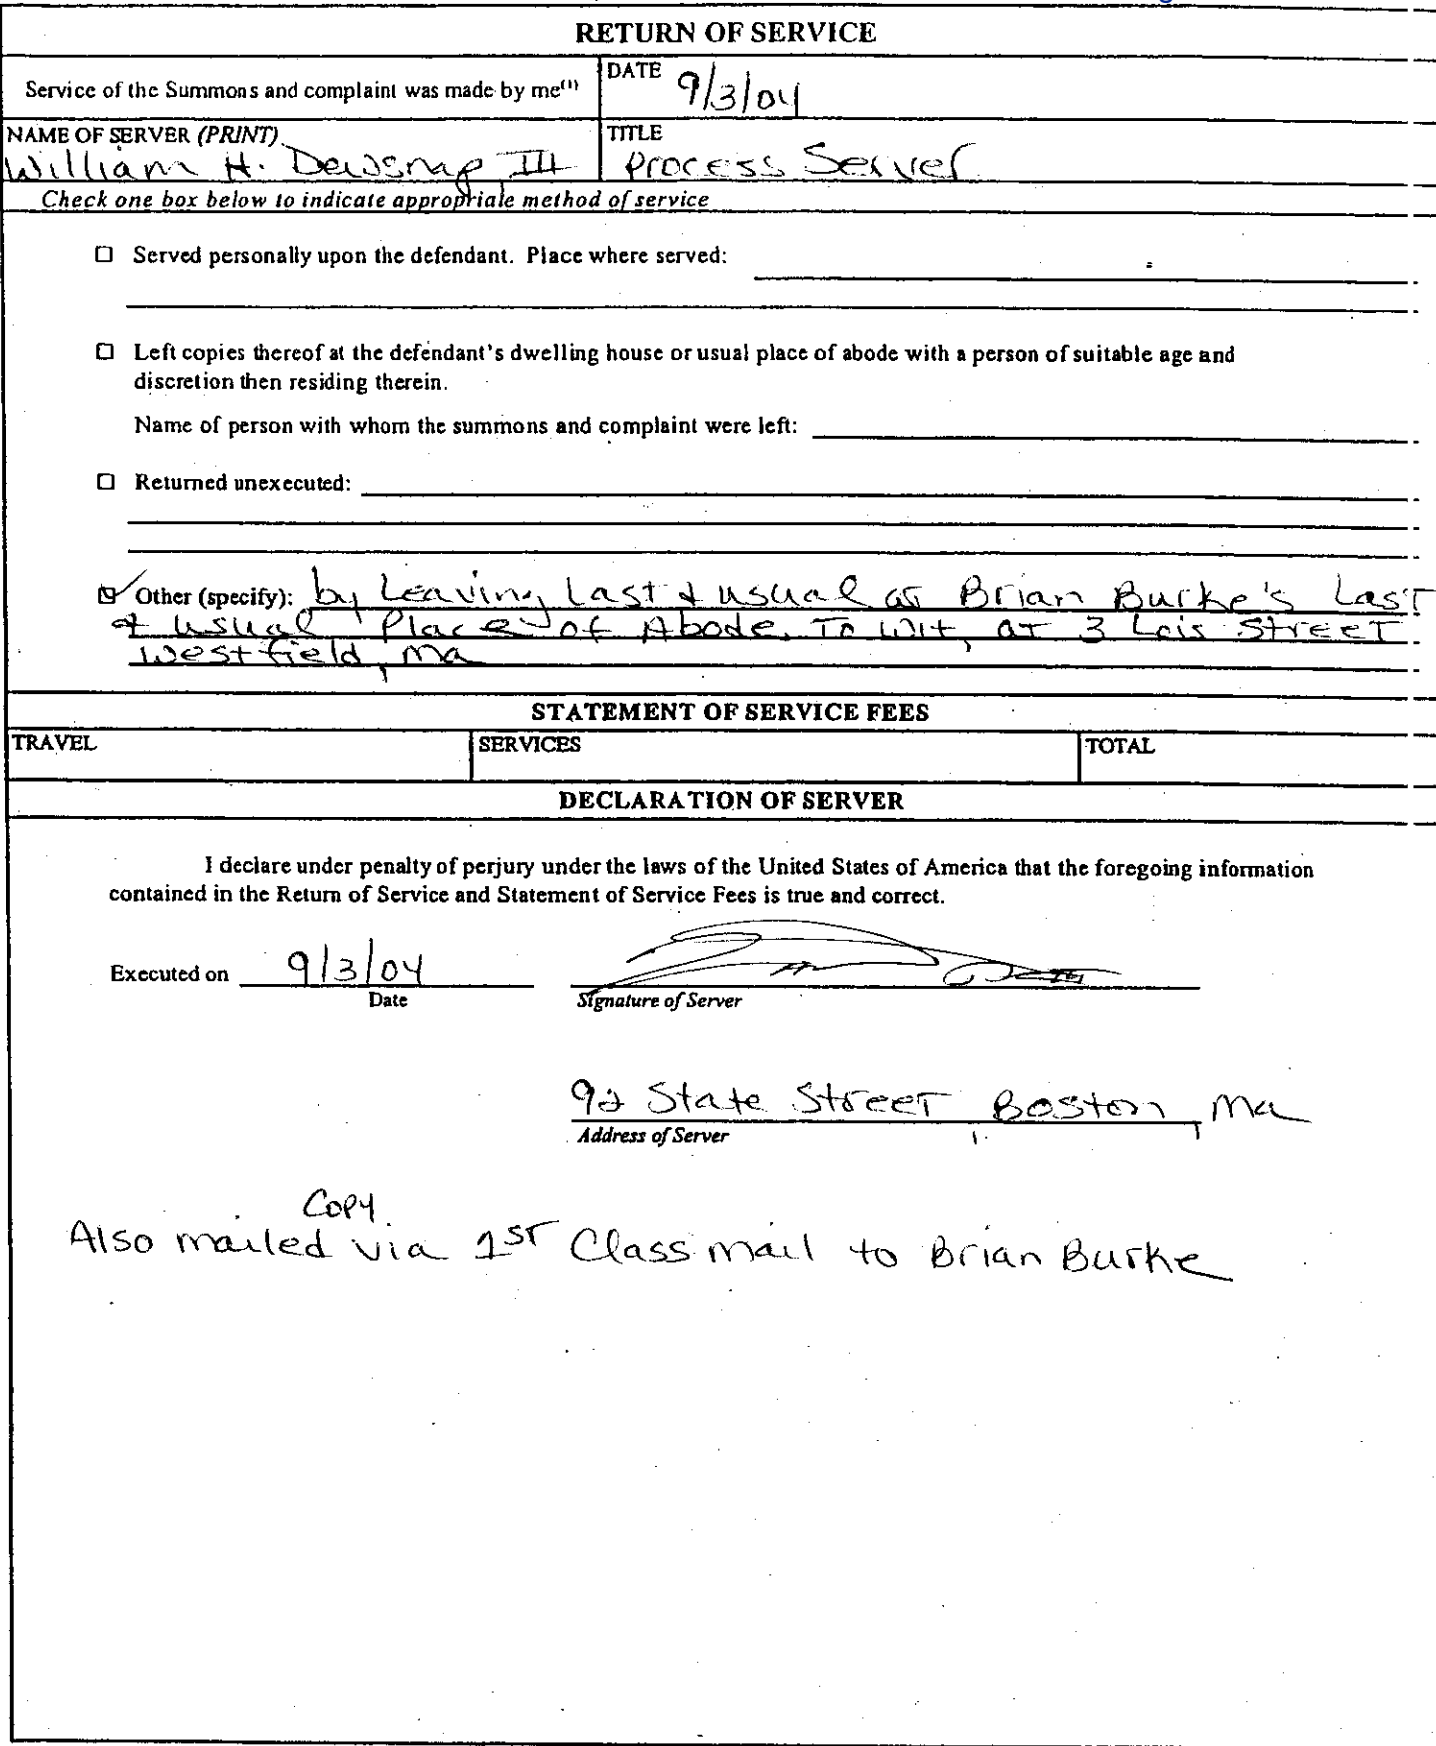 RETURN OF SERVICE
Service of the Summons and complaint was made by me(1)
DATE 9/3/04
NAME OF SERVER (PRINT)
William H. Dewsnap III
TITLE
Process Server
Check one box below to indicate appropriate method of service
☐ Served personally upon the defendant. Place where served:
☐ Left copies thereof at the defendant's dwelling house or usual place of abode with a person of suitable age and
discretion then residing therein.
Name of person with whom the summons and complaint were left:
☐ Returned unexecuted:
☑ Other (specify): by Leaving Last & usual at Brian Burke's Last
& usual Place of Abode, To Wit, at 3 Lois Street
Westfield, Ma
STATEMENT OF SERVICE FEES
TRAVEL SERVICES TOTAL
DECLARATION OF SERVER
I declare under penalty of perjury under the laws of the United States of America that the foregoing information
contained in the Return of Service and Statement of Service Fees is true and correct.
Executed on 9/3/04
Date Signature of Server
92 State Street, Boston, Ma
Address of Server
Copy
Also mailed via 1st Class mail to Brian Burke